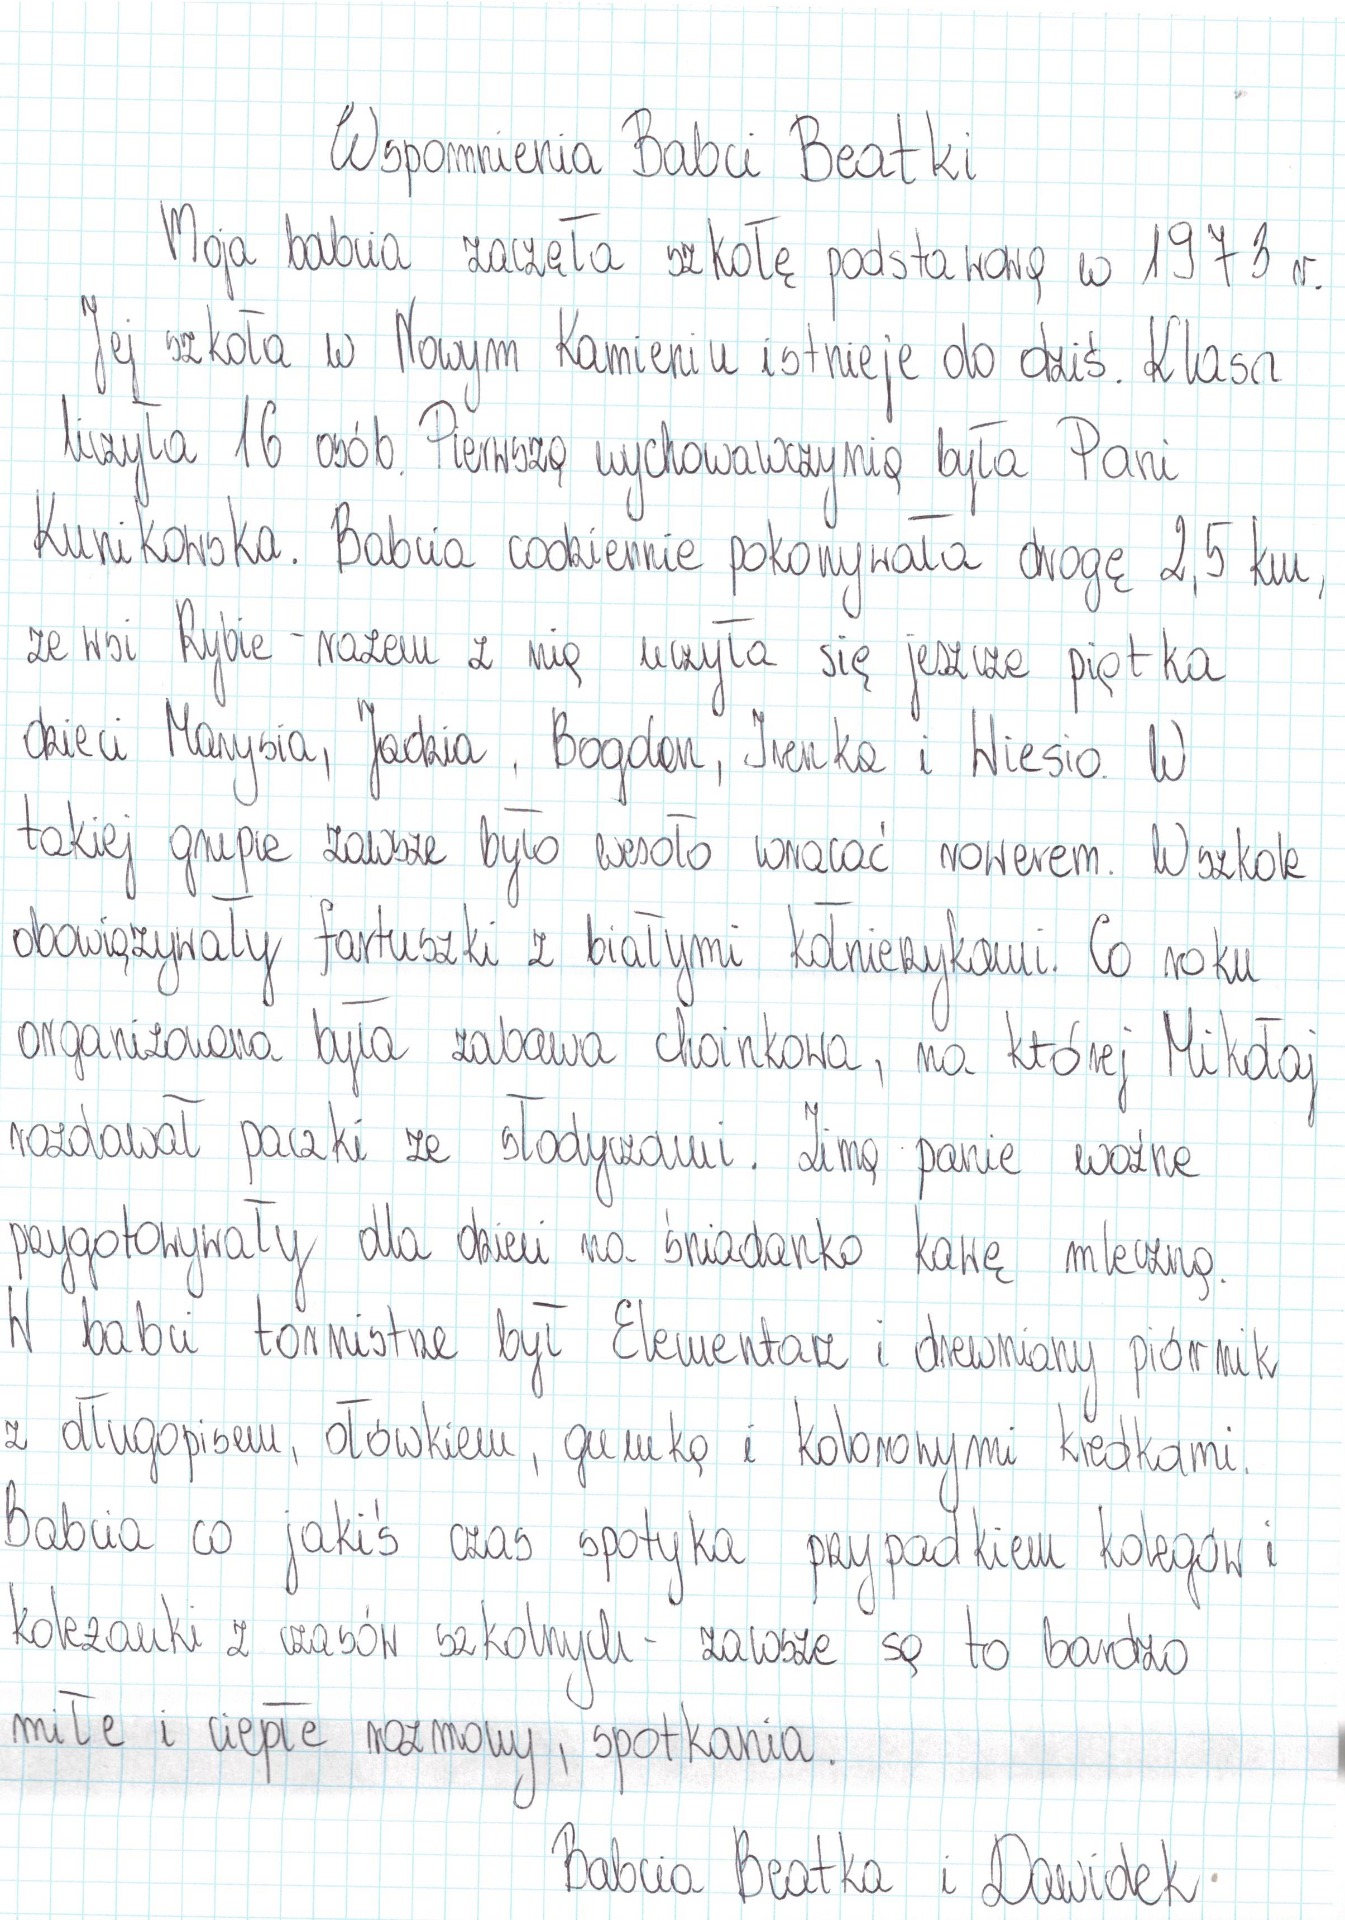 Wspomnienia Babci Beatki
Moja babcia zaczęła szkołę podstawową w 1973 r.
Jej szkoła w Nowym Kamieniu istnieje do dziś. Klasa
liczyła 16 osób. Pierwszą wychowawczynią była Pani
Kunikowska. Babcia codziennie pokonywała drogę 2,5 km,
ze wsi Rybie - razem z nią uczyła się jeszcze piątka
dzieci Marysia, Jadzia, Bogdan, Irenka i Wiesio. W
takiej grupie zawsze było wesoło wracać rowerem. W szkole
obowiązywały fartuszki z białymi kołnierzykami. Co roku
organizowana była zabawa choinkowa, na której Mikołaj
rozdawał paczki ze słodyczami. Zimą panie woźne
przygotowywały dla dzieci na śniadanko kawę mleczną.
W babci tornistrze był Elementarz i drewniany piórnik
z długopisem, ołówkiem, gumką i kolorowymi kredkami.
Babcia co jakiś czas spotyka przypadkiem kolegów i
koleżanki z czasów szkolnych - zawsze są to bardzo
miłe i ciepłe rozmowy, spotkania.
Babcia Beatka i Dawidek.